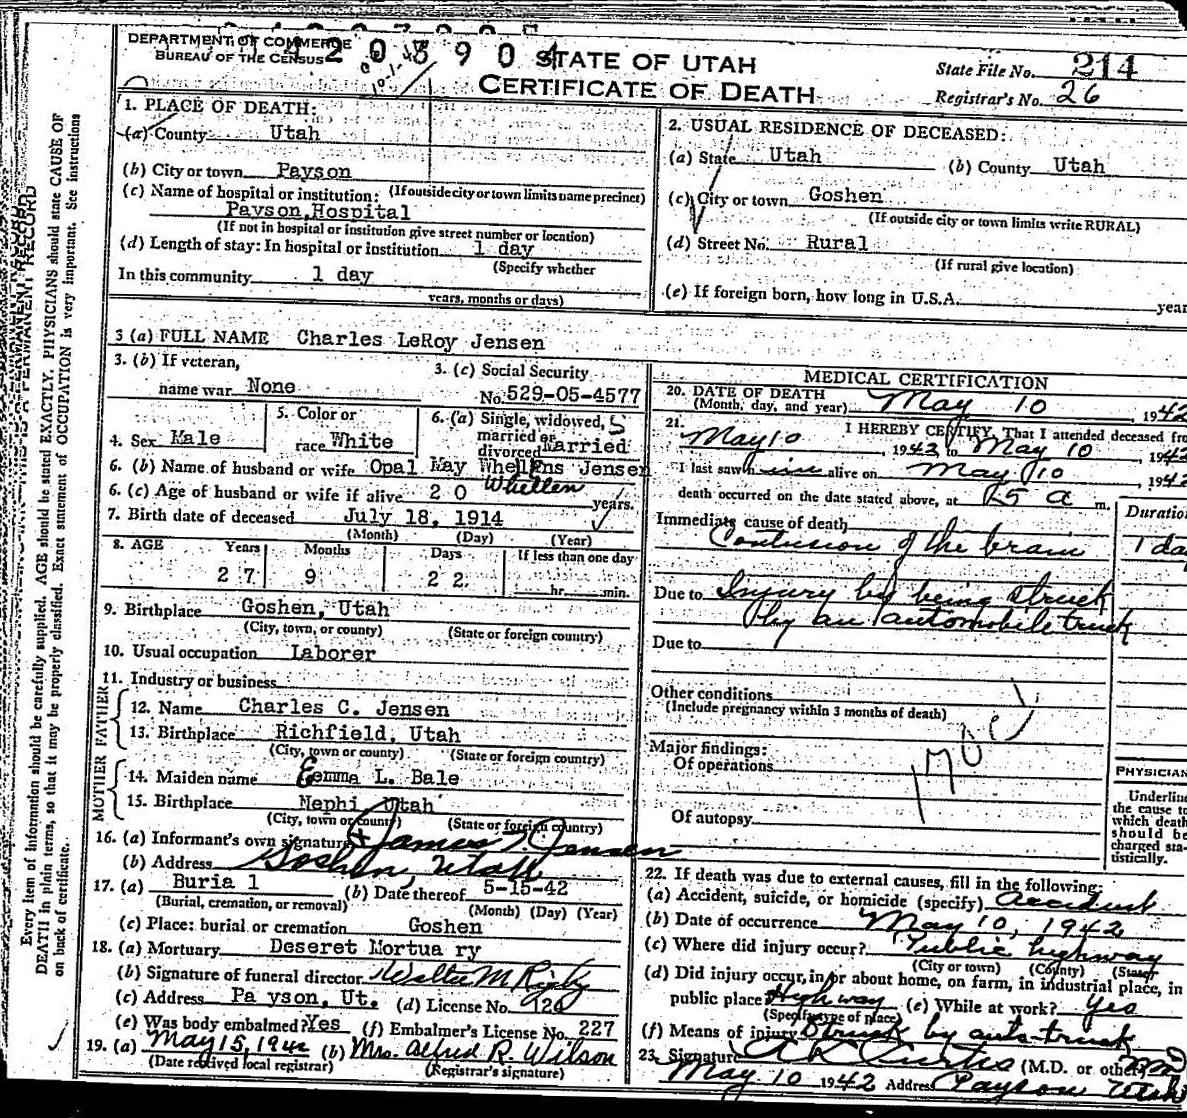 DEPARTMENT OF COMMERCE
BUREAU OF THE CENSUS
STATE OF UTAH
CERTIFICATE OF DEATH
State File No. 214
Registrar's No. 26
1. PLACE OF DEATH:
(a) County Utah
(b) City or town Payson
(If outside city or town limits name precinct)
(c) Name of hospital or institution:
Payson Hospital
(If not in hospital or institution give street number or location)
(d) Length of stay: In hospital or institution 1 day
(Specify whether
In this community 1 day
years, months or days)
2. USUAL RESIDENCE OF DECEASED:
(a) State Utah (b) County Utah
(c) City or town Goshen
(If outside city or town limits write RURAL)
(d) Street No. Rural
(If rural give location)
(e) If foreign born, how long in U.S.A. year
3 (a) FULL NAME Charles LeRoy Jensen
3. (b) If veteran,
name war None
3. (c) Social Security
No. 529-05-4577
4. Sex Male
5. Color or
race White
6. (a) Single, widowed,
married or
divorced Married
6. (b) Name of husband or wife Opal May Whellens Jensen
Whellen
6. (c) Age of husband or wife if alive 20 years.
7. Birth date of deceased July 18, 1914
(Month) (Day) (Year)
8. AGE Years Months Days If less than one day
27 9 22 hr. min.
9. Birthplace Goshen, Utah
(City, town, or county) (State or foreign country)
10. Usual occupation Laborer
11. Industry or business
FATHER
12. Name Charles C. Jensen
13. Birthplace Richfield, Utah
(City, town or county) (State or foreign country)
MOTHER
14. Maiden name Emma L. Bale
15. Birthplace Nephi, Utah
(City, town or county) (State or foreign country)
16. (a) Informant's own signature James Jensen
(b) Address Goshen, Utah
17. (a) Buria l (b) Date thereof 5-15-42
(Burial, cremation, or removal) (Month) (Day) (Year)
(c) Place: burial or cremation Goshen
18. (a) Mortuary Deseret Mortua ry
(b) Signature of funeral director Walter M Rigby
(c) Address Pa yson, Ut. (d) License No.
(e) Was body embalmed? Yes (f) Embalmer's License No. 227
19. (a) May 15, 1942 (b) Mrs. Alfred R. Wilson
(Date received local registrar) (Registrar's signature)
MEDICAL CERTIFICATION
20. DATE OF DEATH
(Month, day, and year) May 10 1942
21. I HEREBY CERTIFY, That I attended deceased fro
May 10, 1942 to May 10, 1942
I last saw him alive on May 10, 1942
death occurred on the date stated above, at a m.
Duration
Immediate cause of death
Contusion of the brain 1 day
Due to Injury by being struck
by an automobile truck
Due to
Other conditions
(Include pregnancy within 3 months of death)
Major findings:
Of operations
Of autopsy
PHYSICIAN
Underline
the cause to
which death
should be
charged sta-
tistically.
22. If death was due to external causes, fill in the following:
(a) Accident, suicide, or homicide (specify) Accident
(b) Date of occurrence May 10, 1942
(c) Where did injury occur? Public highway
(City or town) (County) (State)
(d) Did injury occur, in or about home, on farm, in industrial place, in
public place? Highway (e) While at work? Yes
(Specify type of place)
(f) Means of injury Struck by auto-truck
23. Signature A K Curtis (M.D. or other) MD
May 10 1942 Address Payson Utah
Every item of information should be carefully supplied. AGE should be stated EXACTLY. PHYSICIANS should state CAUSE OF
DEATH in plain terms, so that it may be properly classified. Exact statement of OCCUPATION is very important. See instructions
on back of certificate.